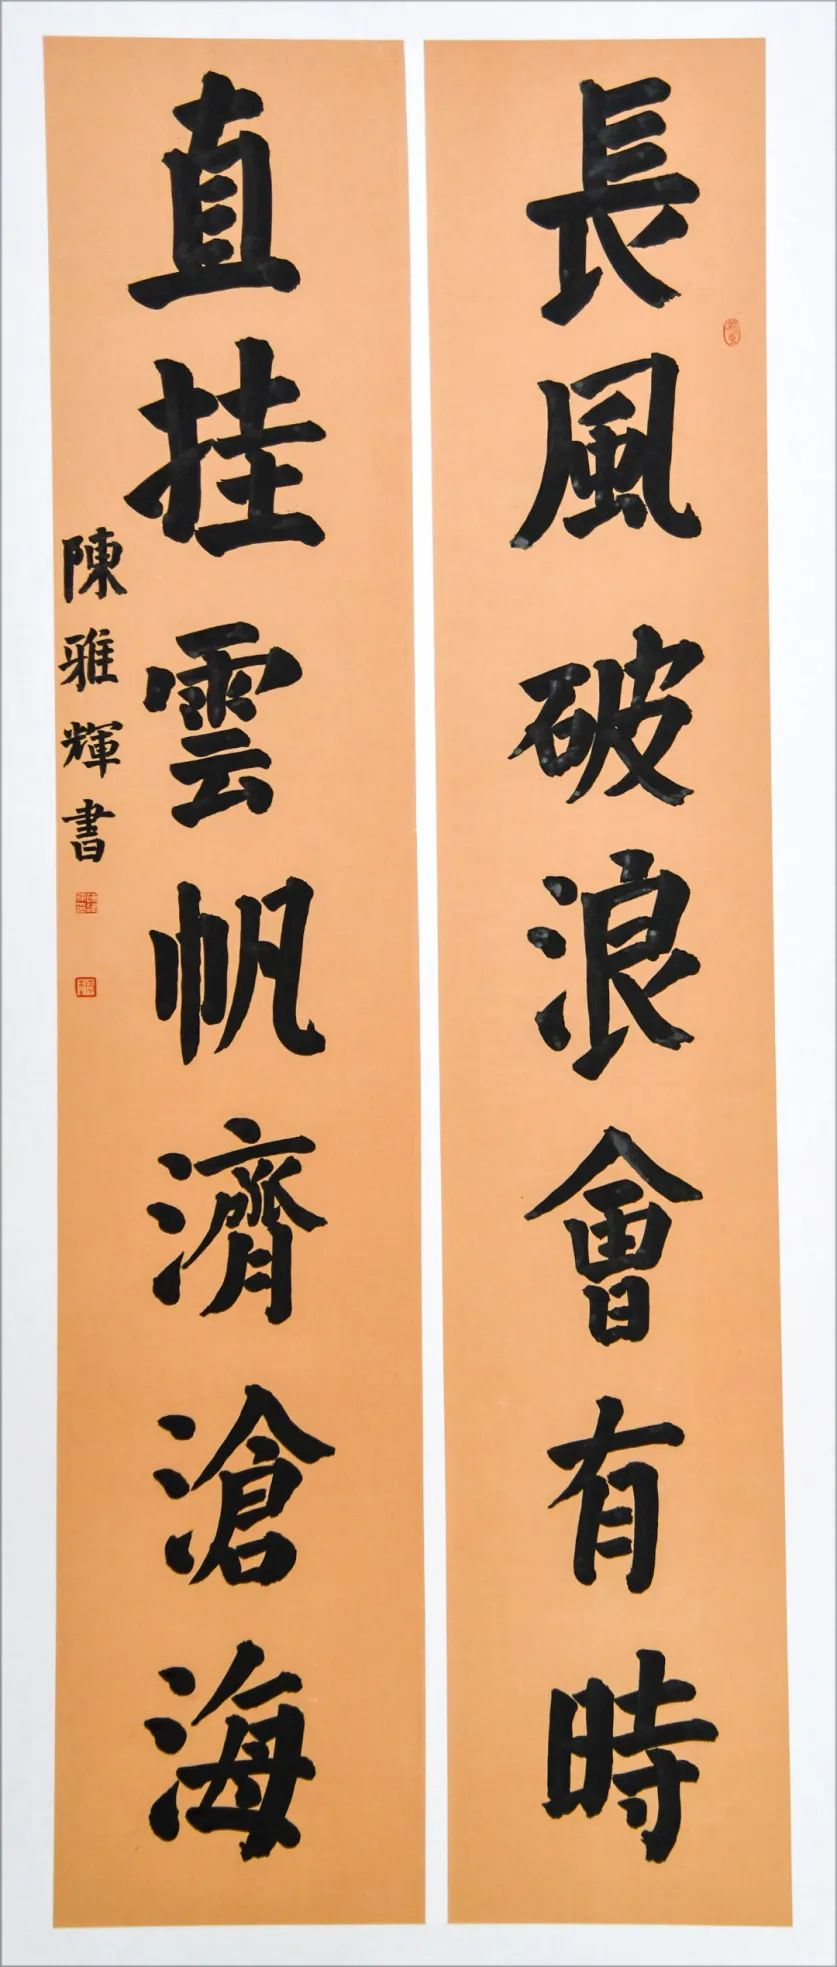 長風破浪會有時
直挂雲帆濟滄海
陳雅輝書